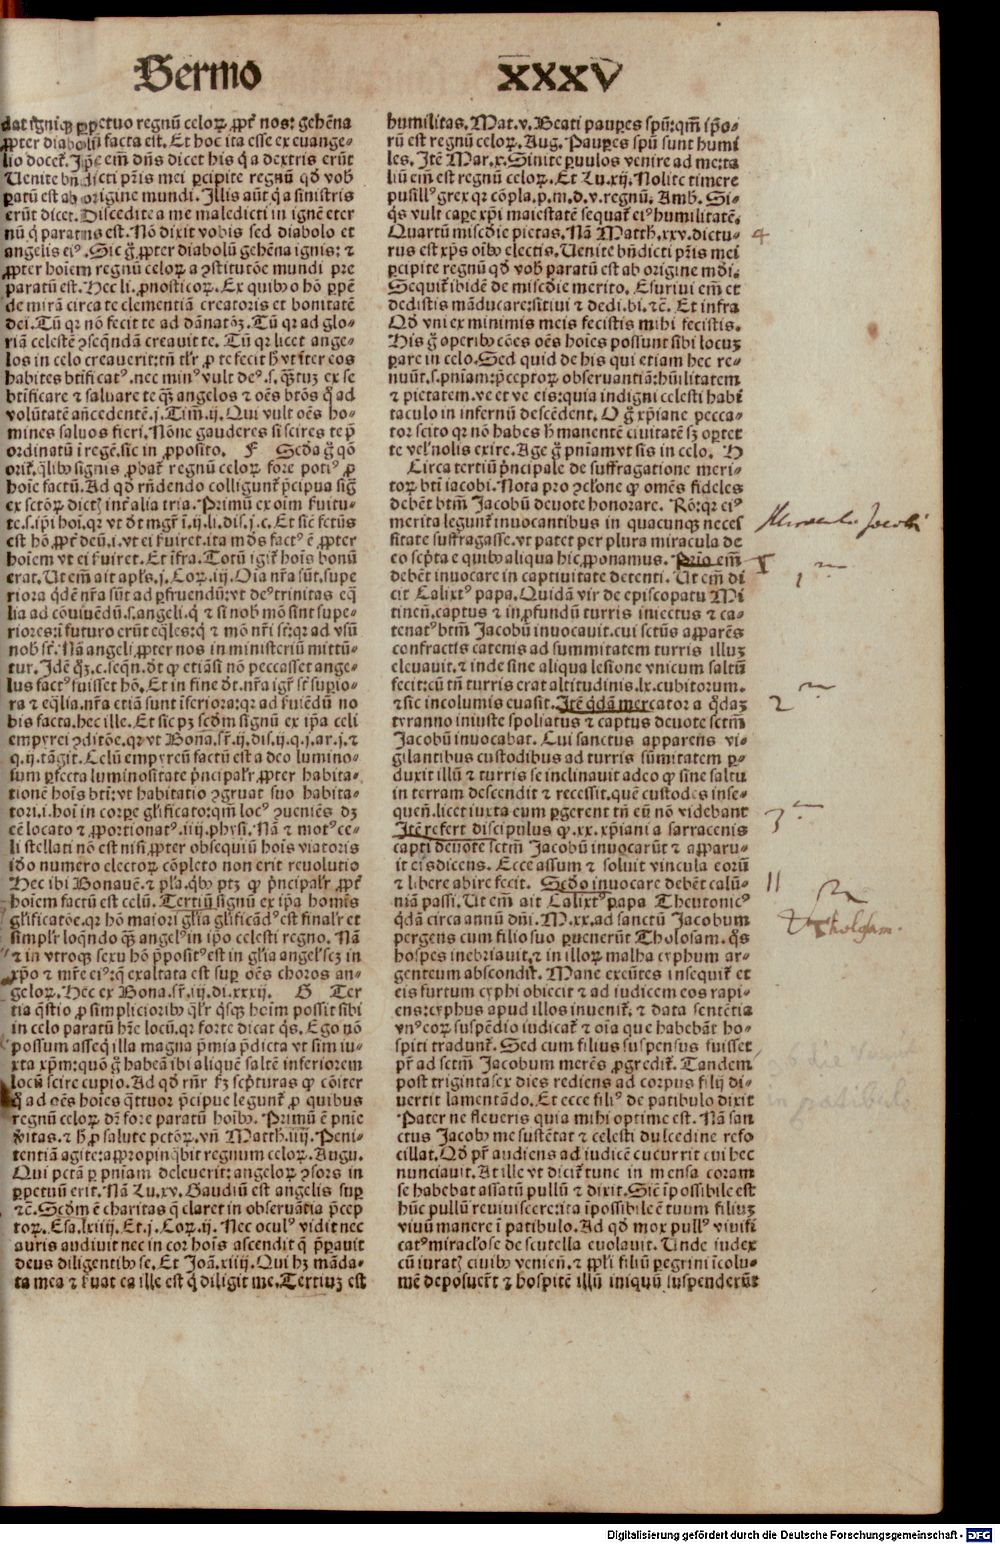 Sermo XXXV
dat igniq; ꝑpetuo regnũ celoꝝ ꝓpt̃ nos: gehẽna
ꝓpter diabolũ facta est. Et hoc ita esse ex euange-
lio docet̃. Ip̃e em̃ dñs dicet his q̃ a dextris erũt
Uenite bñdicti pr̃is mei ꝑcipite regnũ qđ vob̃
ꝑatũ est ab origine mundi. Illis aũt q̃ a sinistris
erũt dicet. Discedite a me maledicti in ignẽ eter
nũ q̃ paratus est. Nõ dixit vobis sed diabolo et
angelis eiꝰ. Sic g̃ ꝓpter diabolũ gehẽna ignis: ⁊
ꝓpter hoĩem regnũ celoꝝ a ꝯstitutõe mundi pre
paratũ est. Hec li. ꝓnosticoꝝ. Ex quibꝰ o hõ ꝑpẽ
de mirã circa te clementiã creatoris et bonitatẽ
dei. Tũ qꝛ nõ fecit te ad dãnatõꝫ. Tũ qꝛ ad glo-
riã celestẽ ꝯseq̃ndã creauit te. Tũ qꝛ licet ange-
los in celo creauerit: tñ tl̃r ꝓ te fecit ħ vt ĩter eos
habites bt̃ificatꝰ. nec minꝰ vult deꝰ. s. q̃tuꝫ ex se
bt̃ificare ⁊ saluare te q̃ angelos ⁊ oẽs btõs q̃ ad
volũtatẽ añcedentẽ. j. Tim̃. ij. Qui vult oẽs ho-
mines saluos fieri. Nõne gauderes si scires te p̃
ordinatũ ĩ regẽ. sic in ꝓposito. F Scđa g̃ qõ
orit̃. q̃libꝰ signis ꝓbat̃ regnũ celoꝝ fore potiꝰ ꝓ
hoĩe factũ. Ad qđ rñdendo colligunt̃ p̃cipua sig̃
ex sctõꝝ dictꝭ int̃ alia tria. Primũ ex oĩm ẜuitu-
te. s. ip̃i hoĩ. qꝛ vt đt mgr̃ ĩ. ij. li. dis. j. c. Et sic fctũs
est hõ ꝓpt̃ deũ. i. vt ei ẜuiret. ita mđs factꝰ ẽ ꝓpter
hoĩem vt ei ẜuiret. Et ĩfra. Totũ igit̃ hoĩs bonũ
erat. Ut em̃ ait apl̃s. j. Coꝝ. iij. Oĩa nr̃a sũt. supe
riora q̃dẽ nr̃a sũt ad ꝑfruendũ: vt deꝰ trinitas eq̃
lia ad cõviuẽdũ. s. angeli. q̃ ⁊ si nob̃ mõ sint supe-
riores: ĩ futuro erũt eq̃les: q̃ ⁊ mõ nr̃i st̃: qꝛ ad vsũ
nob̃ st̃. Nã angeli ꝓpter nos in ministeriũ mittũ-
tur. Idẽ q̃ꝫ. c. seq̃n. đt ꝙ etiãsi nõ peccasset ange-
lus factꝰ fuisset hõ. Et in fine đt. nr̃a igit̃ st̃ supio-
ra ⁊ eq̃lia. nr̃a etiã sunt ĩferiora: qꝛ ad ẜuiẽdũ no
bis facta. hec ille. Et sic pꝫ scđm signũ ex ip̃a celi
empyrei ꝯditõe. qꝛ vt Bona. sr̃. ij. dis. ij. q. j. ar. j. ⁊
q. ij. tãgit. Celũ empyreũ factũ est a deo lumino-
sum ꝑfecta luminositate p̃ncipalr̃. ꝓpter habita-
tionẽ hoĩs bti: vt habitatio ꝯgruat suo habita-
tori. i. hoĩ in corꝑe gl̃ificato: qm̃ locꝰ ꝯueniẽs đꝫ
cẽ locato ⁊ ꝓportionatꝰ. iiij. physi. Nã ⁊ motꝰ ce-
li stellati nõ est nisi ꝓpter obsequiũ hoĩs viatoris
iđo numero electoꝝ cõpleto non erit reuolutio
Hec ibi Bonauẽ. ⁊ pl̃a. q̃bꝰ ptꝫ ꝙ p̃ncipalr̃ ꝓpt̃
hoĩem factũ est celũ. Tertiũ signũ ex ip̃a homĩs
gl̃ificatõe. qꝛ hõ maiori gl̃ia gl̃ificãdꝰ est finalr̃ et
simpl̃r loq̃ndo q̃ angelꝰ in ip̃o celesti regno. Nã
⁊ in vtroqꝫ sexu hõ p̃positꝰ est in gl̃ia angelꝰ sꝫ in
xp̃o ⁊ mr̃e eiꝰ: q̃ exaltata est suꝑ oẽs choros an-
geloꝝ. Hec ex Bona. sr̃. iij. di. xxxij. G Ter
tia q̃stio ꝓ simplicioribꝰ q̃lr̃ q̃sqꝫ hoĩem possit sibi
in celo paratũ hr̃e locũ. qꝛ forte dicat q̃s. Ego nõ
possum asseq̃ illa magna p̃mia p̃dicta vt sim iu-
xta xp̃m: quõ g̃ habeã ibi aliquẽ saltẽ inferiorem
locũ scire cupio. Ad qđ rñr ẜꝫ scp̃turas ꝙ cõiter
q̃ ad oẽs hoĩes q̃ttuor p̃cipue legunt̃ ꝓ quibus
regnũ celoꝝ dr̃ fore paratũ hoĩbꝰ. Primũ ẽ pnĩe
vitas. ⁊ ħ ꝓ salute pctõꝝ. vñ Matth. iiij. Peni-
tentiã agite: appropinq̃bit regnum celoꝝ. Augu.
Qui pctã ꝑ pniam deleuerit: angeloꝝ ꝯsors in
ꝑpetuũ erit. Nã Lu. xv. Gaudiũ est angelis suꝑ
⁊c̃. Scđm ẽ charitas q̃ claret in obseruãtia p̃cep
toꝝ. Esa. lxiiij. Et. j. Coꝝ. ij. Nec oculꝰ vidit nec
auris audiuit nec in cor hoĩs ascendit q̃ p̃parauit
deus diligentibꝰ se. Et Joã. xiiij. Qui hꝫ mãda-
ta mea ⁊ ẜuat ea ille est q̃ diligit me. Tertiuꝫ est
humilitas. Mat. v. Beati pauꝑes spũ: qm̃ ip̃o-
rũ est regnũ celoꝝ. Aug. Pauꝑes spũ sunt humi
les. Itẽ Mar. x. Sinite ꝑuulos venire ad me: ta
liũ em̃ est regnũ celoꝝ. Et Lu. xij. Nolite timere
pusillꝰ grex qꝛ cõpla. p. m. d. v. regnũ. Amb. Si-
q̃s vult caꝑe xp̃i maiestatẽ sequat̃ eiꝰ humilitatẽ.
Quartũ misc̃die pietas. Nã Matth. xxv. dictu- 4
rus est xp̃s oĩbꝰ electis. Uenite bñdicti pr̃is mei
ꝑcipite regnũ qđ vob̃ paratũ est ab origine mđi.
Sequit̃ ibidẽ de misc̃die merito. Esuriui em̃ et
dedistis mãducare: sitiui ⁊ dedi. bi. ⁊c̃. Et infra
Qđ vni ex minimis meis fecistis mihi fecistis.
His g̃ operibꝰ cẽs oẽs hoĩes possunt sibi locuꝫ
ꝑare in celo. Sed quid de his qui etiam hec re-
nuũt. s. pniam: p̃ceptoꝝ obseruantiã: hũilitatem
⁊ pietatem. ve et ve eis: quia indigni celesti habi
taculo in infernũ descẽdent. O g̃ xp̃iane pecca-
tor scito qꝛ nõ habes ħ manentẽ ciuitatẽ sꝫ oꝑtet
te vel nolis exire. Age g̃ pniam vt sis in celo. H
Circa tertiũ p̃ncipale de suffragatione meri-
toꝝ bt̃i iacobi. Nota pro ꝯclone ꝙ omẽs fideles
debẽt btm̃ Jacobũ deuote honorare. Rõ: qꝛ eiꝰ
merita legunt̃ inuocantibus in quacunqꝫ neces Miracula Jacobi
sitate suffragasse. vt patet per plura miracula de
eo scp̃ta e quibꝰ aliqua hic ꝓponamus. Prio em̃ I
debẽt inuocare in captiuitate detenti. Ut em̃ di 1 m
cit Calixtꝰ papa. Quidã vir de episcopatu Mu
tineñ. captus ⁊ in ꝓfundũ turris iniectus ⁊ ca-
tenatꝰ btm̃ Jacobũ inuocauit. cui sctũs apparẽs
confractis catenis ad summitatem turris illuꝫ
eleuauit. ⁊ inde sine aliqua lesione vnicum saltũ
fecit: cũ tñ turris erat altitudinis. lx. cubitorum.
⁊ sic incolumis euasit. Itẽ q̃dã mercator a q̃daꝫ 2 m
tyranno iniuste spoliatus ⁊ captus deuote sctm̃
Jacobũ inuocabat. Cui sanctus apparens vi-
gilantibus custodibus ad turris sũmitatem ꝑ-
duxit illũ ⁊ turris se inclinauit adeo ꝙ sine saltu
in terram descendit ⁊ recessit. quẽ custodes inse-
queñ. licet iuxta eum ꝑgerent tñ eũ nõ videbant 3
Itẽ refert discipulus ꝙ. xx. xp̃iani a sarracenis
capti deuote sctm̃ Jacobũ inuocarũt ⁊ apparu-
it eis dicens. Ecce assum ⁊ soluit vincula eorũ
⁊ libere abire fecit. Scđo inuocare debẽt calũ- II
niã passi. Ut em̃ ait Calixtꝰ papa Theutonicꝰ
q̃dã circa annũ dñi. M. xx. ad sanctũ Jacobum Tholosam.
pergens cum filio suo ꝑuenerũt Tholosam. q̃s
hospes inebriauit. ⁊ in illoꝝ malha cyphum ar-
genteum abscondit. Mane exeũtes insequit̃ et
eis furtum cyphi obiecit ⁊ ad iudicem eos rapi-
ens: cyphus apud illos inuenit̃. ⁊ data sentẽtia
vnꝰ eoꝝ suspẽdio iudicat̃ ⁊ oĩa que habebãt ho-
spiti tradunt̃. Sed cum filius suspensus fuisset
pr̃ ad sctm̃ Jacobum merẽs ꝓgredit̃. Tandem
post trigintasex dies rediens ad corpus filij di-
uertit lamentãdo. Et ecce filiꝰ de patibulo dixit
Pater ne fleueris quia mihi optime est. Nã san
ctus Jacobꝰ me sustẽtat ⁊ celesti dulcedine refo
cillat. Qđ pr̃ audiens ad iudicẽ cucurrit cui hec
nunciauit. At ille vt dicit̃ tunc in mensa coram
se habebat assatũ pullũ ⁊ dixit. Sic ĩpossibile est
hũc pullũ reuiuiscere: ita ĩpossibile ẽ tuum filiuꝫ
viuũ manere ĩ patibulo. Ad qđ mox pullꝰ viuifi
catꝰ miracl̃ose de scutella euolauit. Unde iudex
cũ iuratꝭ ciuibꝰ venieñ. ⁊ ꝓpl̃i filiũ ꝑegrini ĩcolu-
mẽ deposuer̃t ⁊ hospitẽ illũ iniquũ suspenderũt
Digitalisierung gefördert durch die Deutsche Forschungsgemeinschaft - DFG